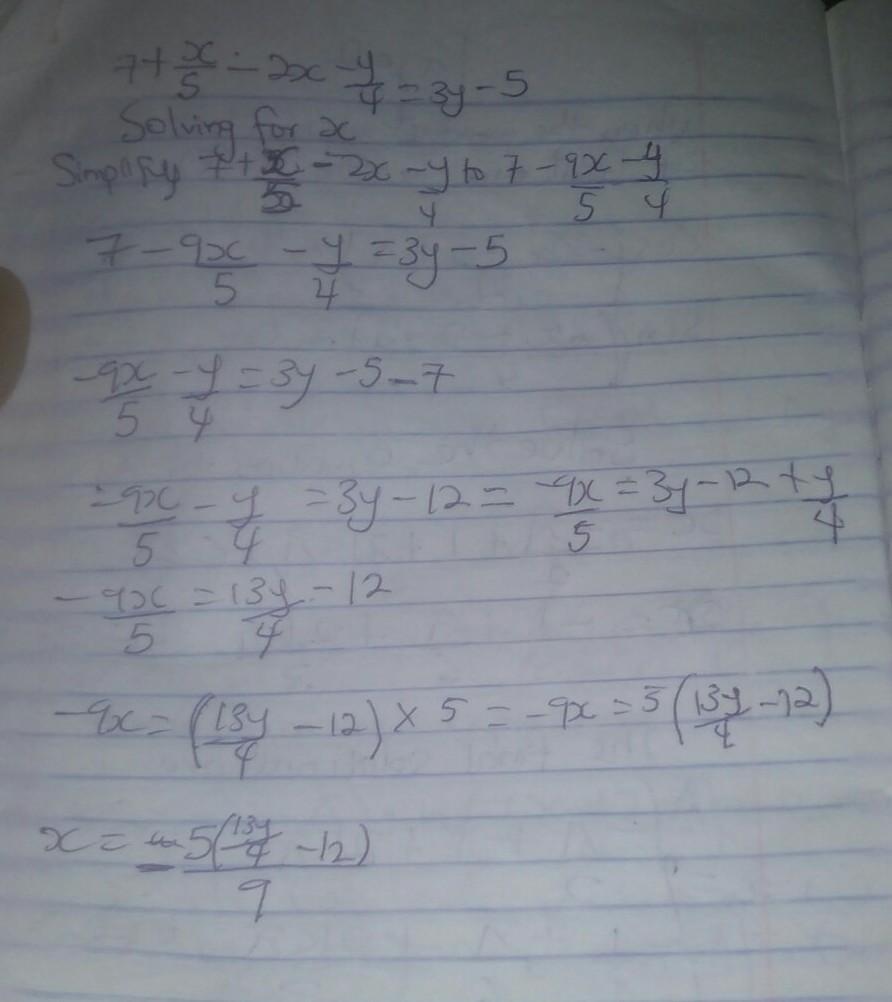 7 + x/5 - 2x - y/4 = 3y - 5
Solving for x
Simplify 7 + x/5 - 2x - y/4 to 7 - 9x/5 - y/4
7 - 9x/5 - y/4 = 3y - 5
-9x/5 - y/4 = 3y - 5 - 7
= -9x/5 - y/4 = 3y - 12 = -9x/5 = 3y - 12 + y/4
-9x/5 = 13y/4 - 12
-9x = (13y/4 - 12) × 5 = -9x = 5(13y/4 - 12)
x = -5(13y/4 - 12)/9